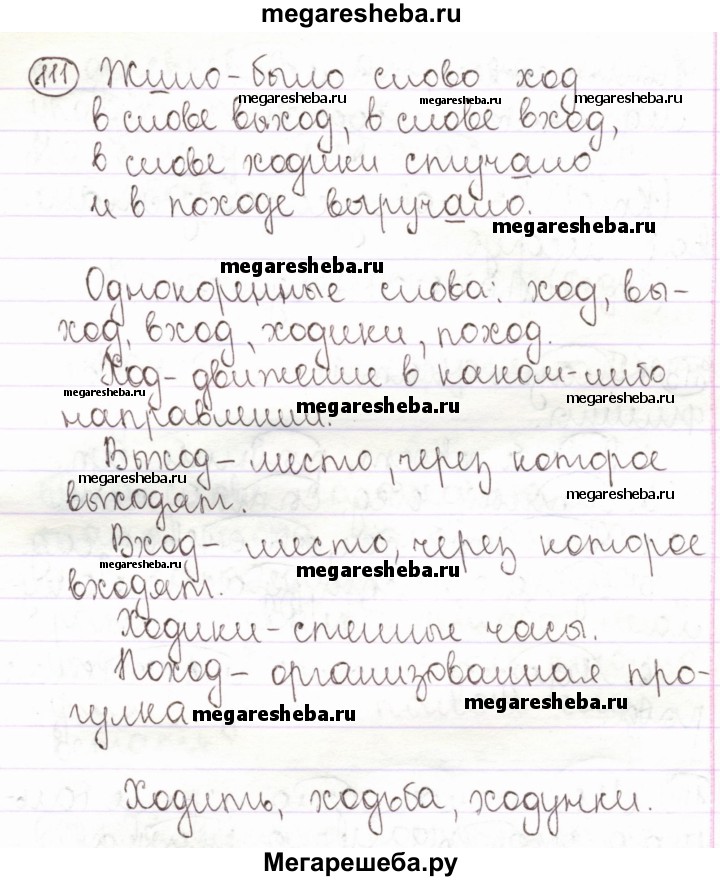 megaresheba.ru
111 Жило-было слово ход
megaresheba.ru megaresheba.ru megaresheba.ru
в слове выход, в слове вход,
в слове ходики стучало
и в походе выручало.
megaresheba.ru
megaresheba.ru
Однокоренные слова: ход, вы-
ход, вход, ходики, поход.
Ход- движение в каком-либо
megaresheba.ru megaresheba.ru megaresheba.ru
направлении.
Выход- место, через которое
megaresheba.ru megaresheba.ru
выходят.
Вход- место, через которое
megaresheba.ru megaresheba.ru
входят.
Ходики-стенные часы.
Поход- организованная про-
гулка megaresheba.ru megaresheba.ru
Ходить, ходьба, ходунки.
Мегарешеба.ру